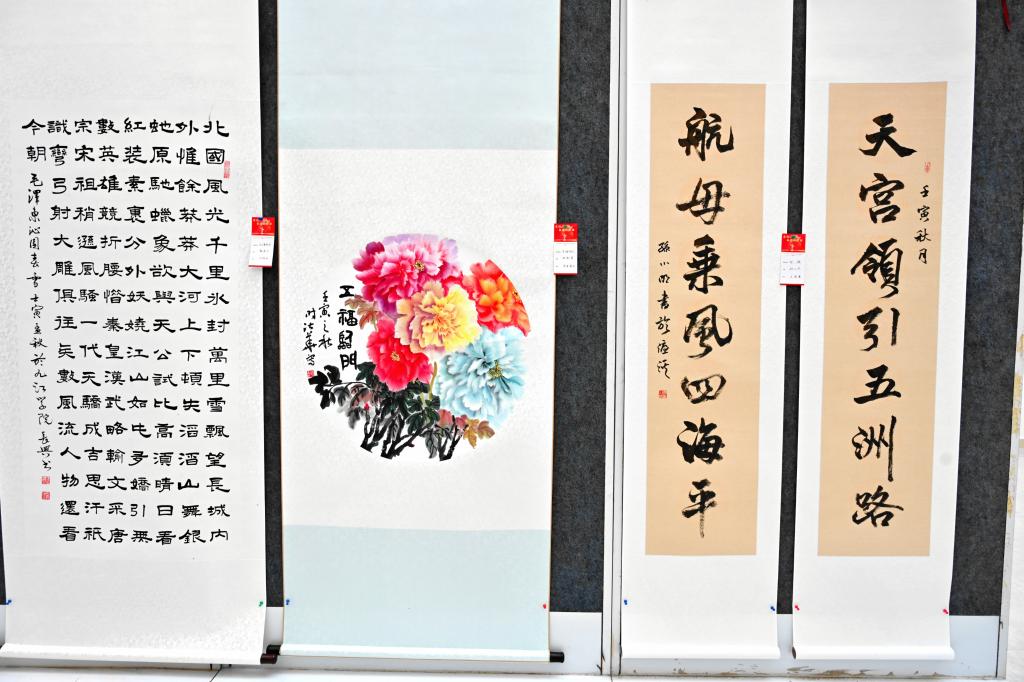 北國風光千里冰封萬里雪飄望長城内
外惟餘莽莽大河上下頓失滔滔山舞銀
蛇原馳蠟象欲與天公試比高須晴日看
紅裝素裹分外妖嬈江山如此多嬌引無
數英雄競折腰惜秦皇漢武略輸文采唐
宗宋祖稍遜風騷一代天驕成吉思汗祇
識彎弓射大雕俱往矣數風流人物還看
今朝
毛澤東沁園春雪壬寅孟秋於九江學院長興書
五福臨門
壬寅之秋
壬寅秋月
天宮領引五洲路
航母乘風四海平
孫小明書於